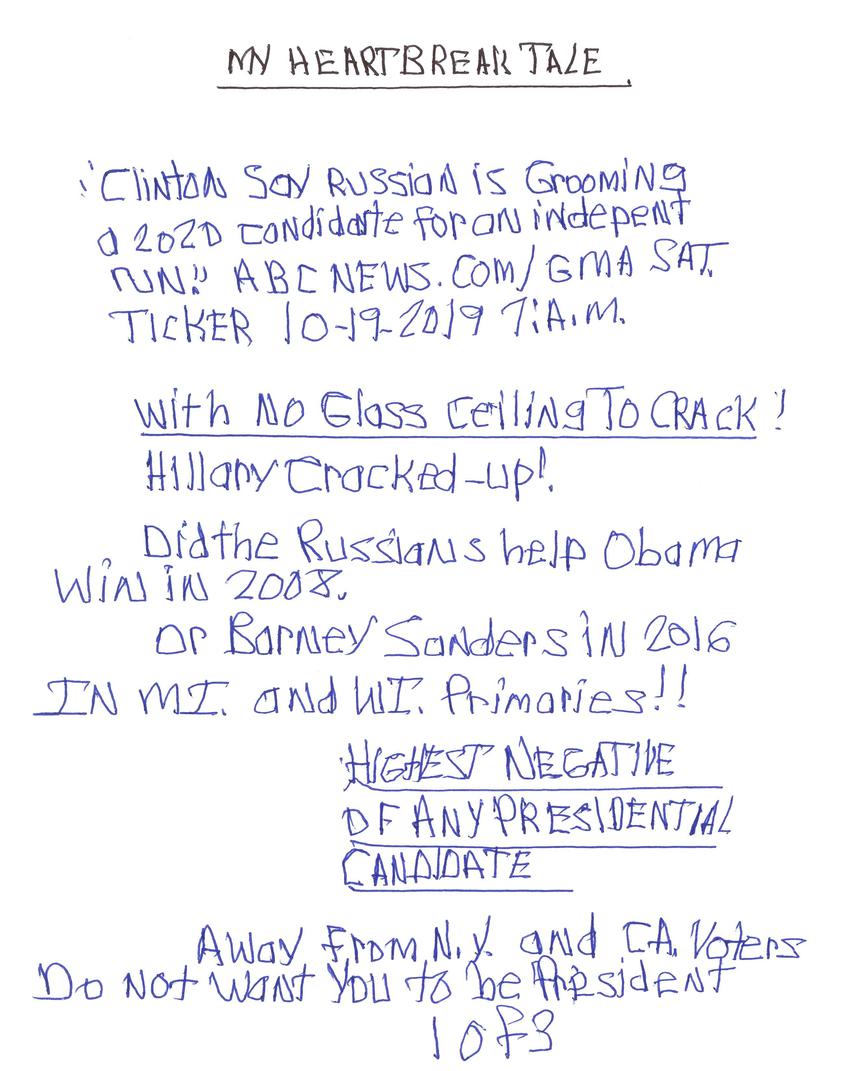 MY HEARTBREAK TALE.
"Clinton Say Russian is Grooming
a 2020 condidate for an indepent
run!! ABCNEWS.COM/GMA SAT.
TICKER 10-19-2019 7:A.M.
With No Glass Ceilling To CRACK!
Hillary Cracked-up!.
Did the Russians help Obama
Win in 2008.
Or Barney Sanders in 2016
IN MI. and WI. Primaries!!
HIGHEST NEGATIVE
OF ANY PRESIDENTIAL
CANDIDATE
Away From N.Y. and CA. Voters
Do Not want You to be President
1 of 3